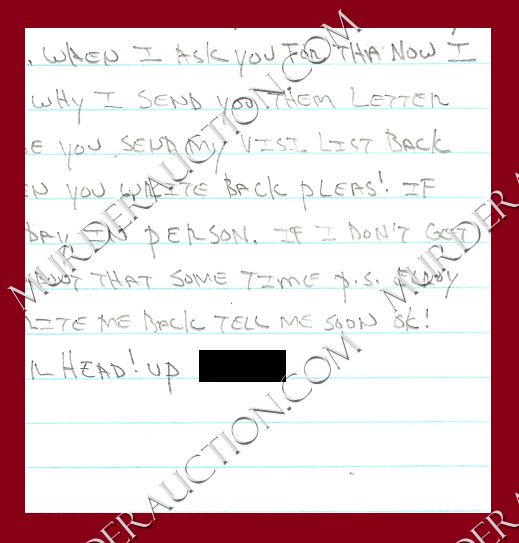 . WHEN I ASK YOU FOR THA NOW I
WHY I SEND YOU THEM LETTER
E YOU SEND MY VISI. LIST BACK
EN YOU WRITE BACK PLEAS! IF
DAY IN PERSON. IF I DON'T GET
THAT SOME TIME P.S. ENJOY
ITE ME BACK TELL ME SOON OK!
R HEAD! UP
MURDERAUCTION.COM
MURDERAUCTION.COM